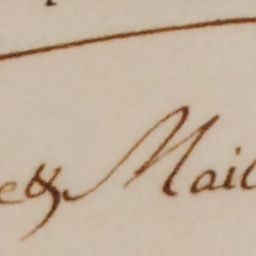 & Mail